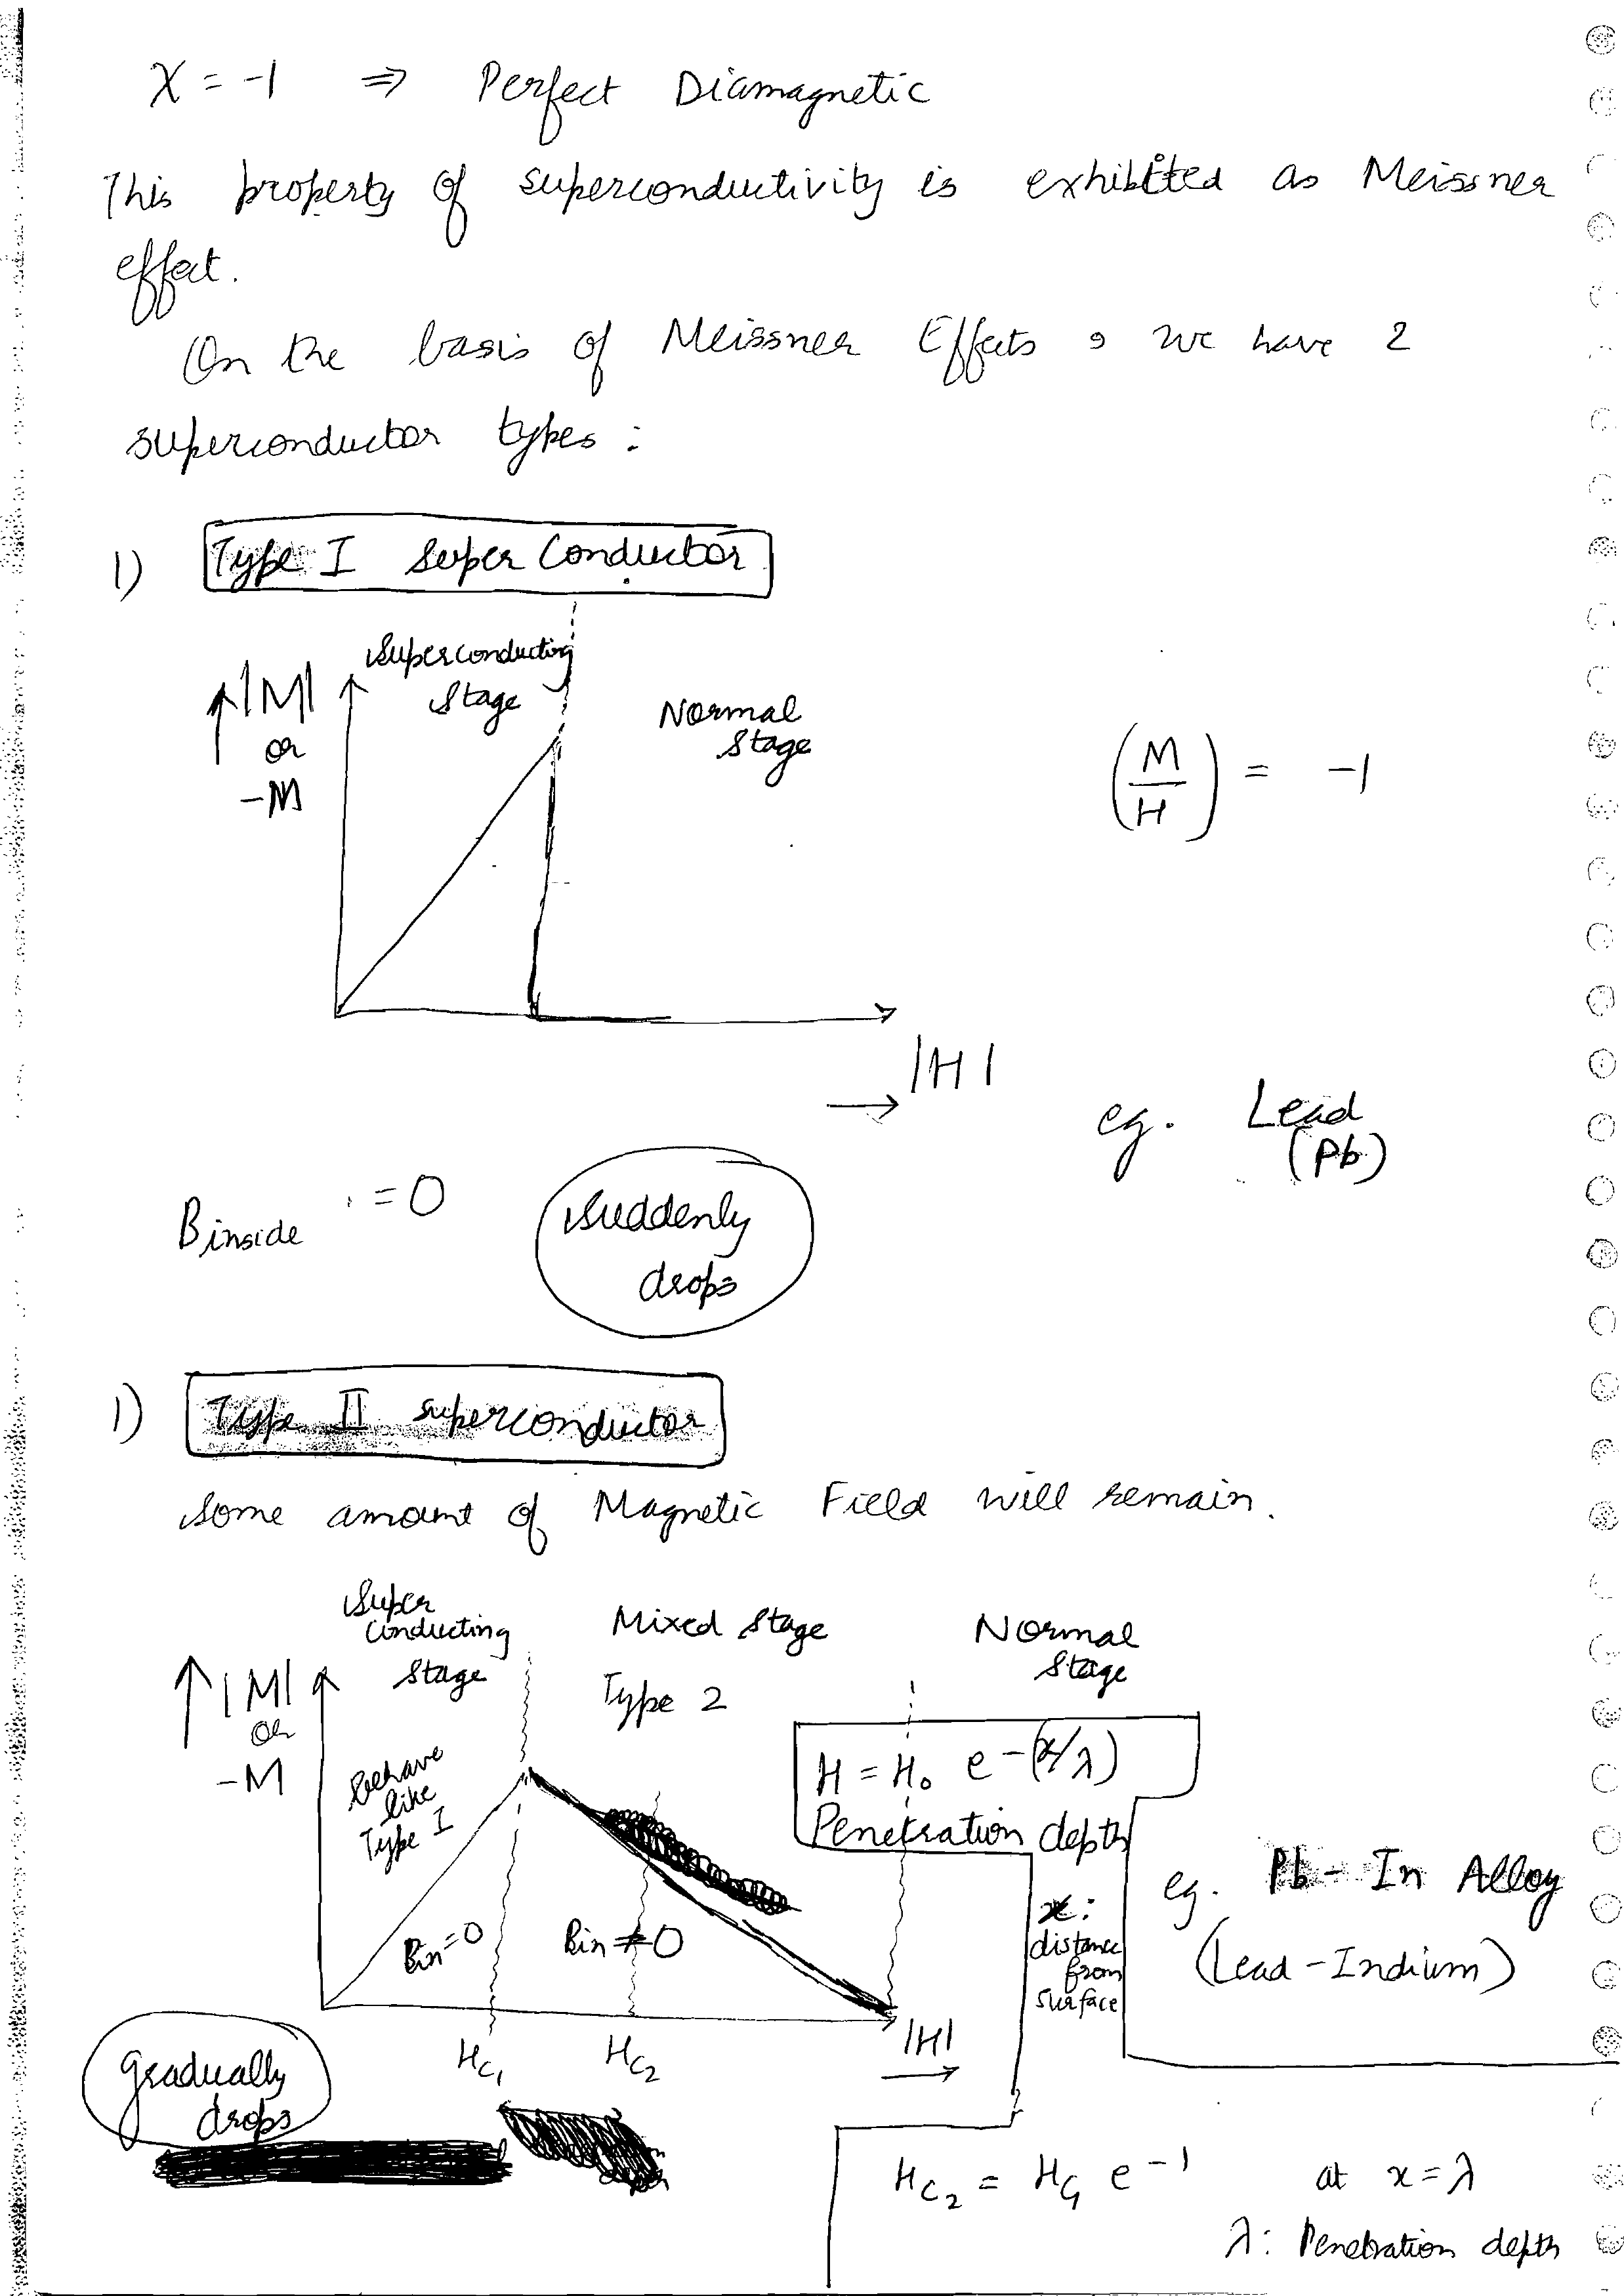 χ = -1 ⇒ Perfect Diamagnetic
This property of superconductivity is exhibited as Meissner
effect.
On the basis of Meissner Effects, we have 2
superconductor types:
1) Type I Super Conductor
Superconducting
Stage
↑|M|
or
-M
Normal
Stage
(M/H) = -1
|H|
→
eg. Lead
(Pb)
B inside = 0
Suddenly
drops
1) Type II superconductor
Some amount of Magnetic Field will remain.
Super
Conducting
Stage
Mixed Stage
Type 2
Normal
Stage
↑|M|
or
-M
Behave
like
Type I
H = H₀ e^-(x/λ)
Penetration depth
x:
distance
from
surface
eg. Pb - In Alloy
(Lead - Indium)
Bin = 0
Bin ≠ 0
HC₁
HC₂
|H|
→
gradually
drops
HC₂ = HC₁ e^-1 at x = λ
λ: Penetration depth